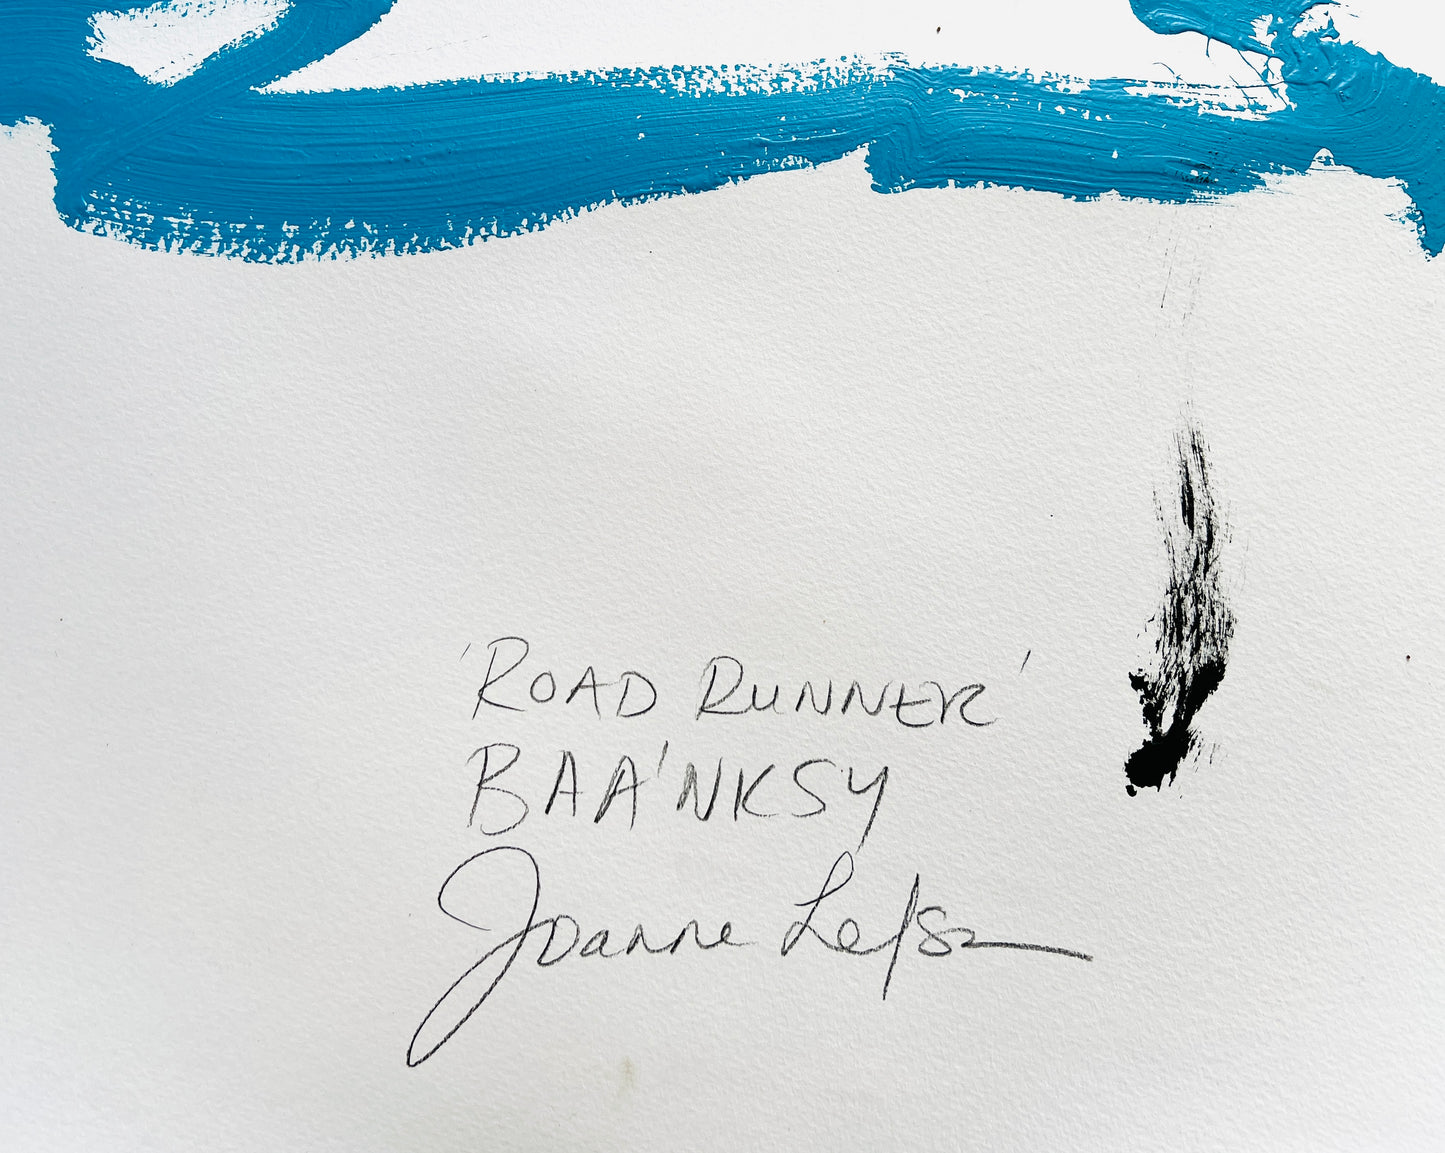 'ROAD RUNNER'
BAA'NKSY
Joanne